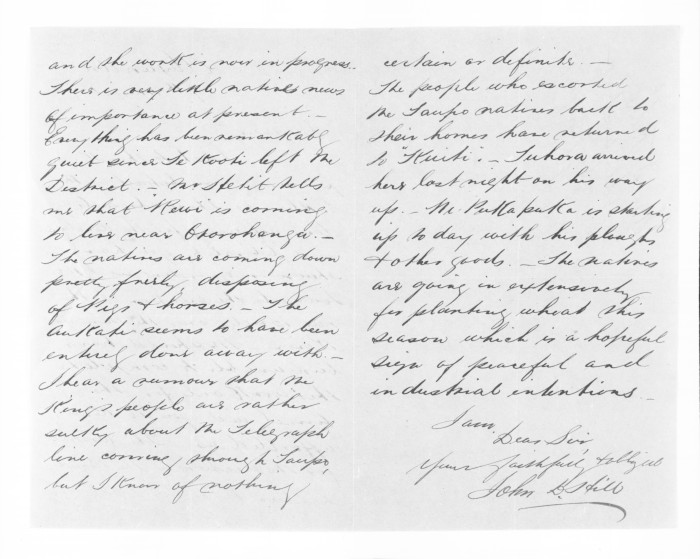 and the work is now in progress.
There is very little natives news
of importance at present. –
Everything has been remarkably
quiet since Te Kooti left the
District. – Mr Hetit tells
me that Rewi is coming
to live near Otorohanga. –
The natives are coming down
pretty freely, disposing
of Pigs & horses. – The
aukati seems to have been
entirely done away with. –
I hear a rumour that the
Kings people are rather
sulky about the Telegraph
line coming through Taupo,
but I know of nothing
certain or definite. –
The people who escorted
the Taupo natives back to
their homes have returned
to "Kuiti". – Tuhora arrived
here last night on his way
up. – Te Pukapuka is starting
up to day with his ploughs
& other goods. – The natives
are going in extensively
for planting wheat this
season which is a hopeful
sign of peaceful and
industrial intentions. –
I am
Dear Sir
Your faithfully & obliged
John D. Hill